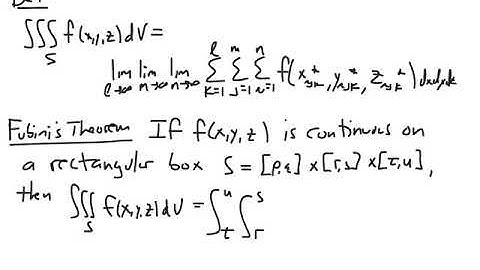 Def
∭_S f(x,y,z) dV =
lim_{ℓ→∞} lim_{m→∞} lim_{n→∞} ∑_{k=1}^{ℓ} ∑_{j=1}^{m} ∑_{i=1}^{n} f(x*_{ijk}, y*_{ijk}, z*_{ijk})
Fubini's Theorem If f(x,y,z) is continuous on
a rectangular box S = [p,q] x [r,s] x [t,u],
then ∭_S f(x,y,z) dV = ∫_t^u ∫_r^s